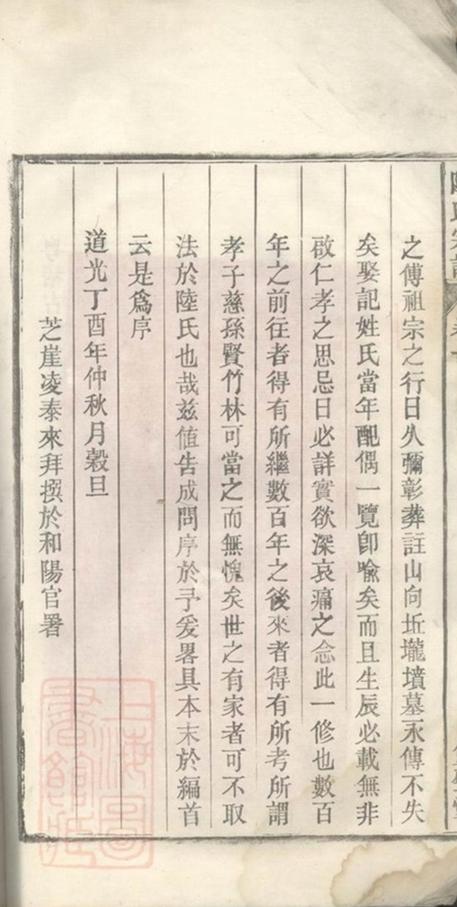 之傳祖宗之行日久彌彰葬註山向坵壠墳墓永傳不失
矣娶記姓氏當年配偶一覽卽喻矣而且生辰必載無非
啟仁孝之思忌日必詳實欲深哀痛之念此一修也數百
年之前往者得有所繼數百年之後來者得有所考所謂
孝子慈孫賢竹林可當之而無愧矣世之有家者可不取
法於陸氏也哉兹值告成問序於予爰畧具本末於編首
云是爲序
道光丁酉年仲秋月穀旦
芝崖凌泰來拜撰於和陽官署